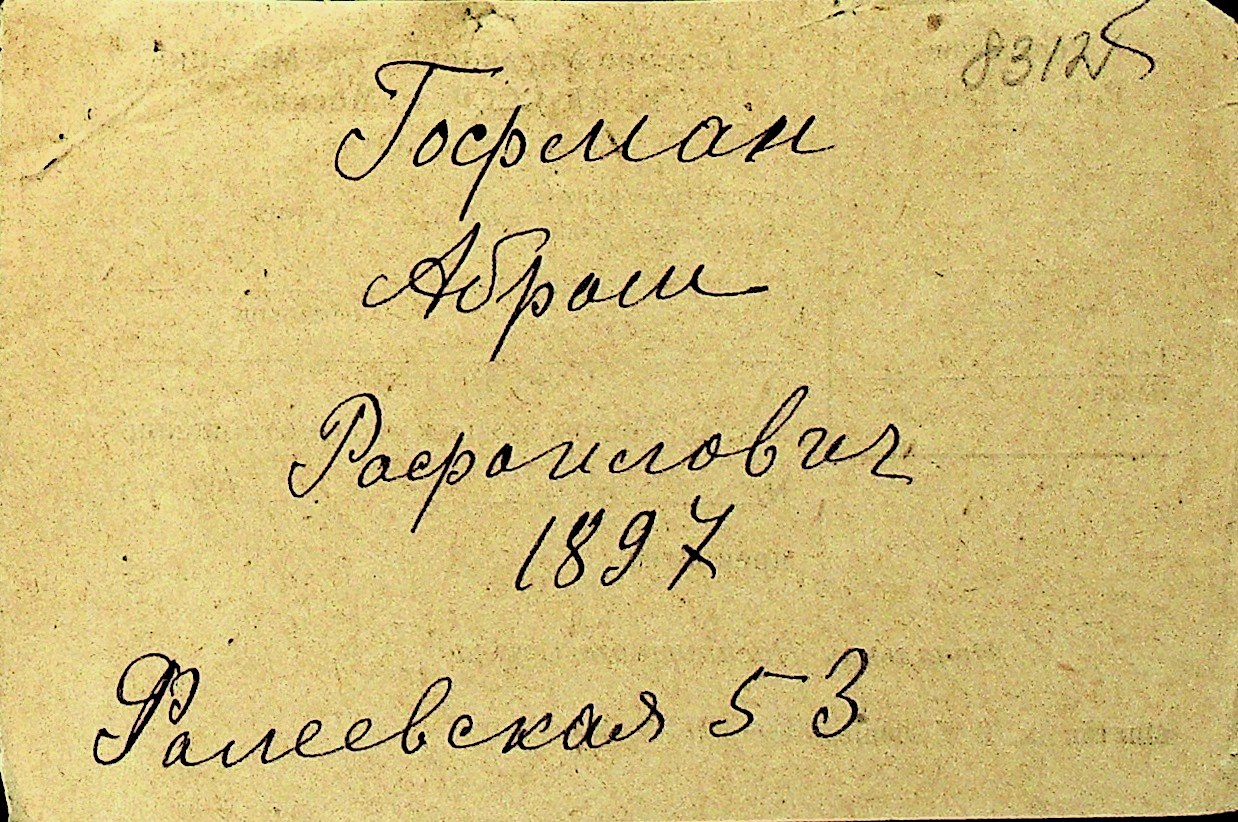 8312
Гофман
Абрам
Рафаилович
1897
Фалеевская 53